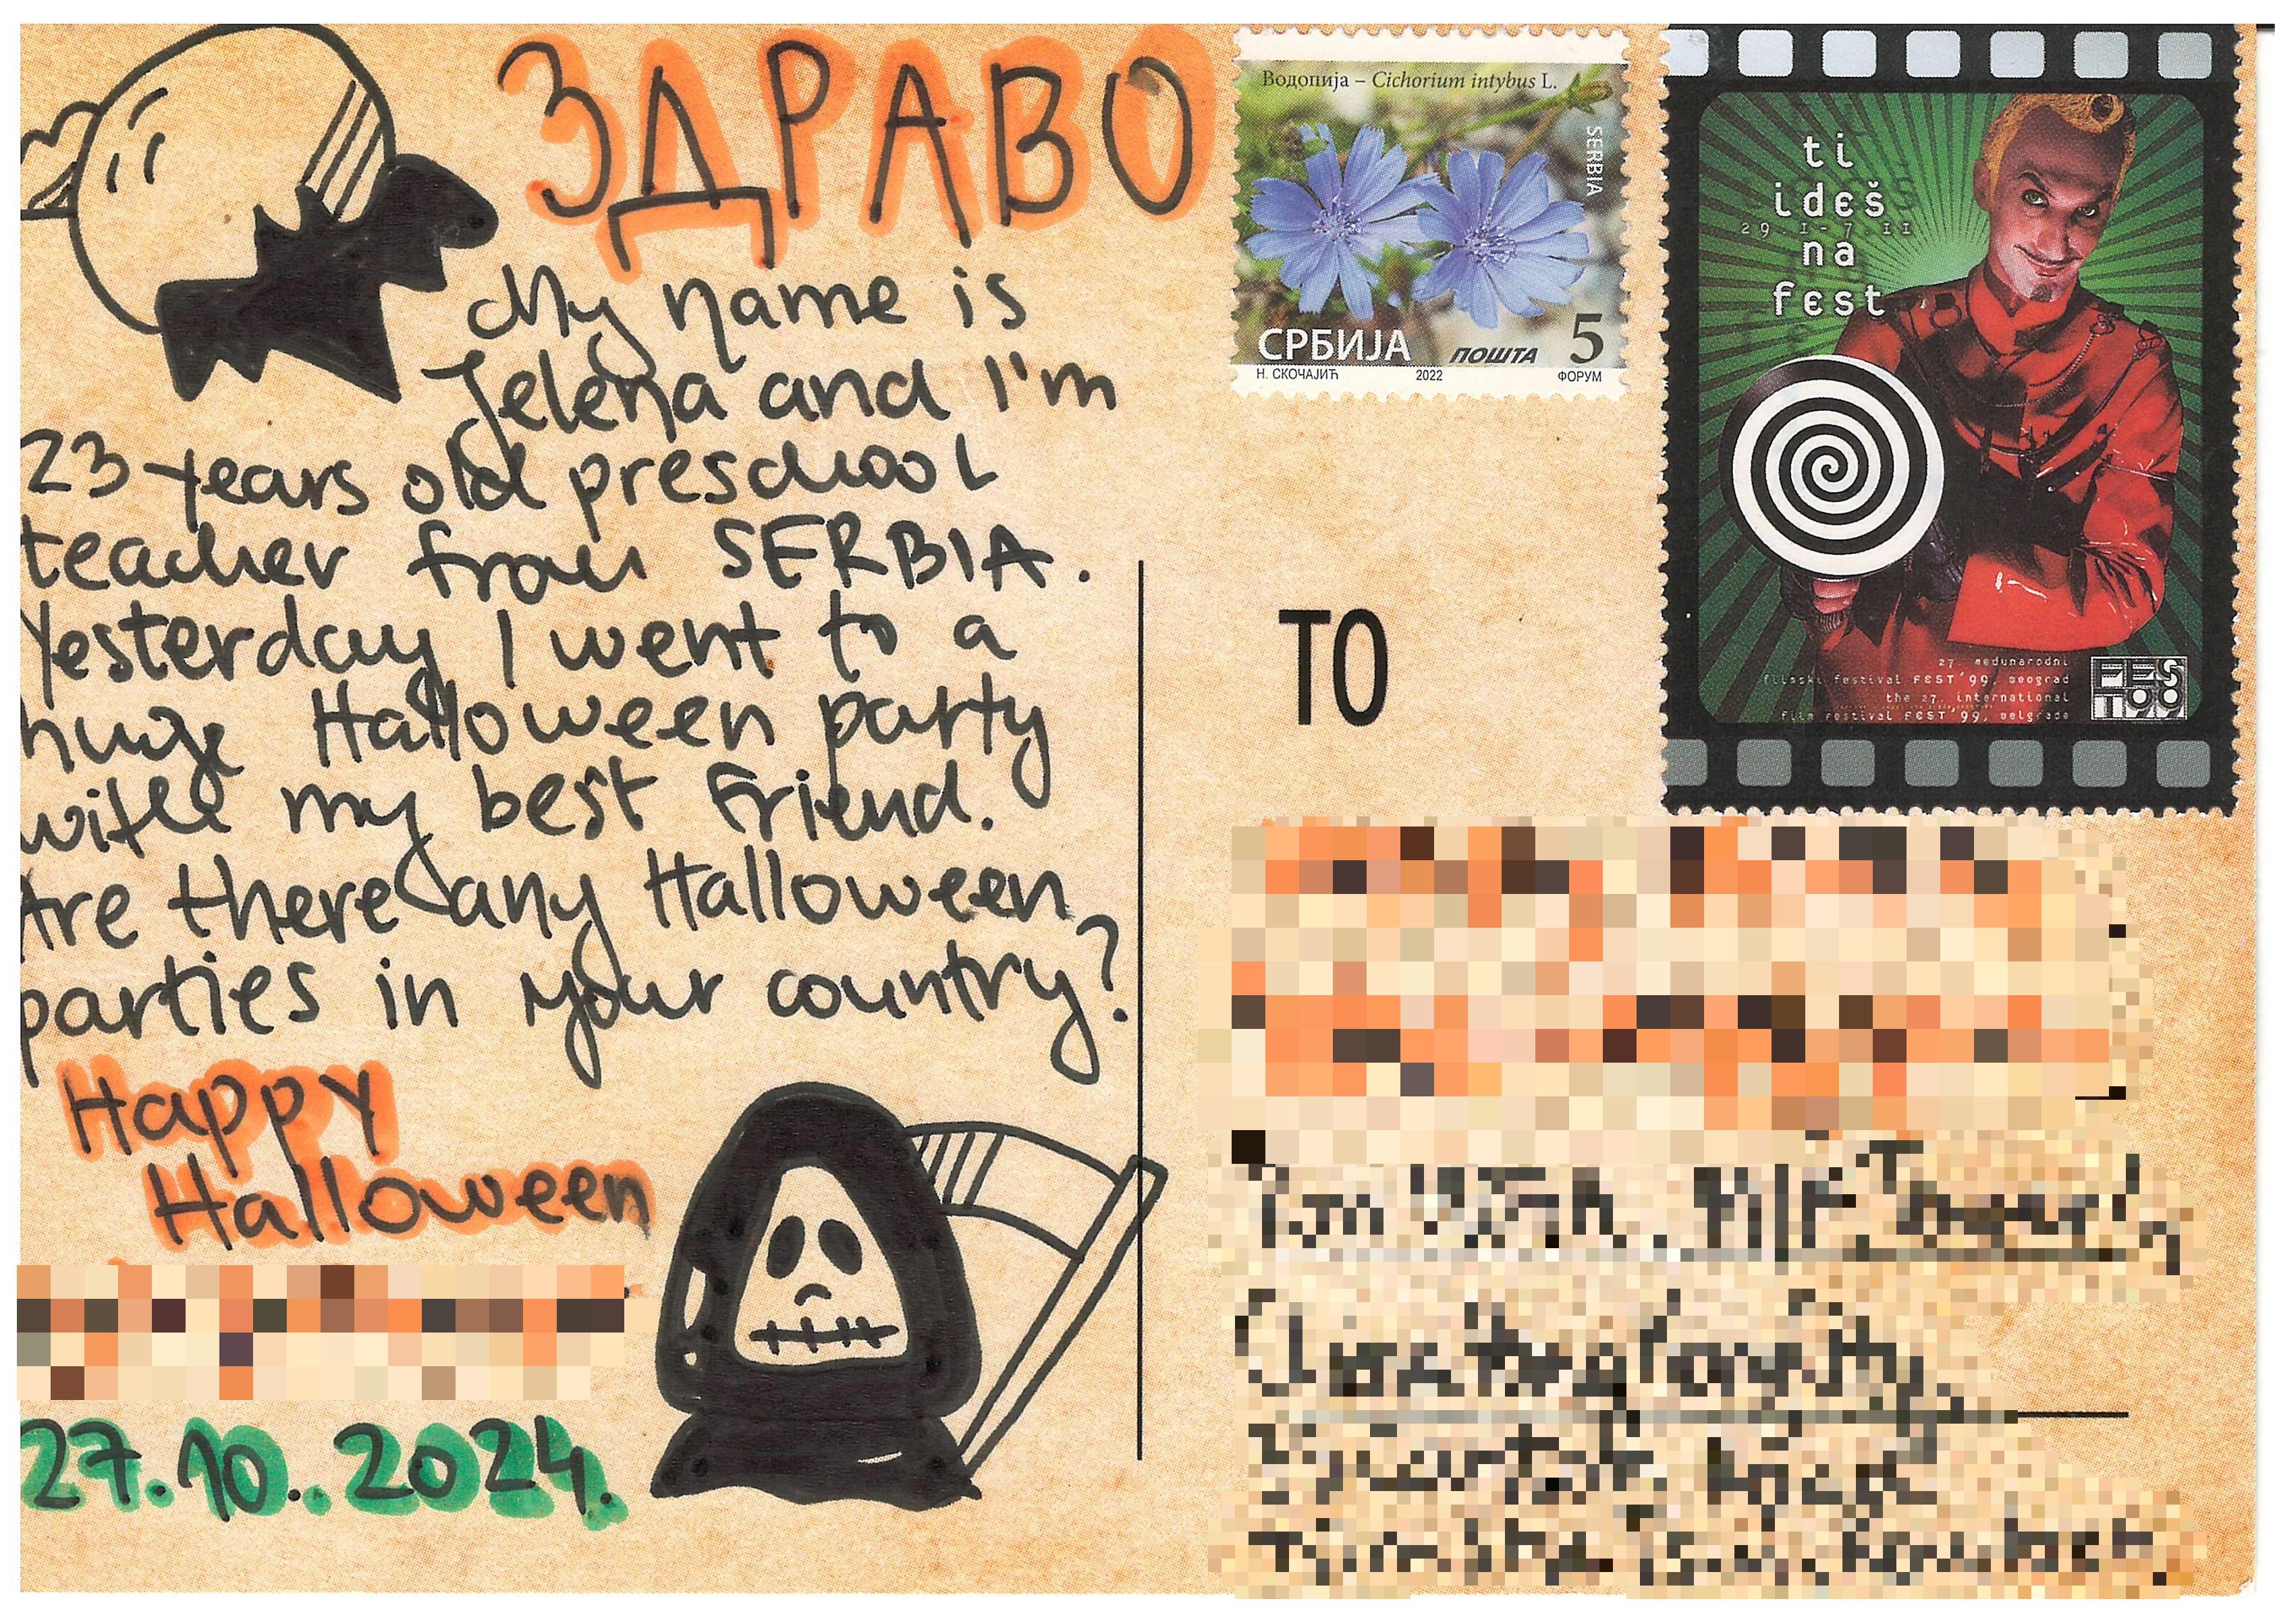 ЗДРАВО
My name is
Jelena and I'm
23 years old preschool
teacher from SERBIA.
Yesterday I went to a
huge Halloween party
with my best friend.
Are there any Halloween
parties in your country?
Happy
Halloween
27.10..2024.
Водопија – Cichorium intybus L.
SERBIA
СРБИЈА ПОШТА 5
Н. СКОЧАЈИЋ 2022 ФОРУМ
ti
ideš
29.I-7.II
na
fest
27. međunarodni
filmski festival FEST'99, beograd
the 27. international
film festival FEST'99, belgrade
FEST
TO